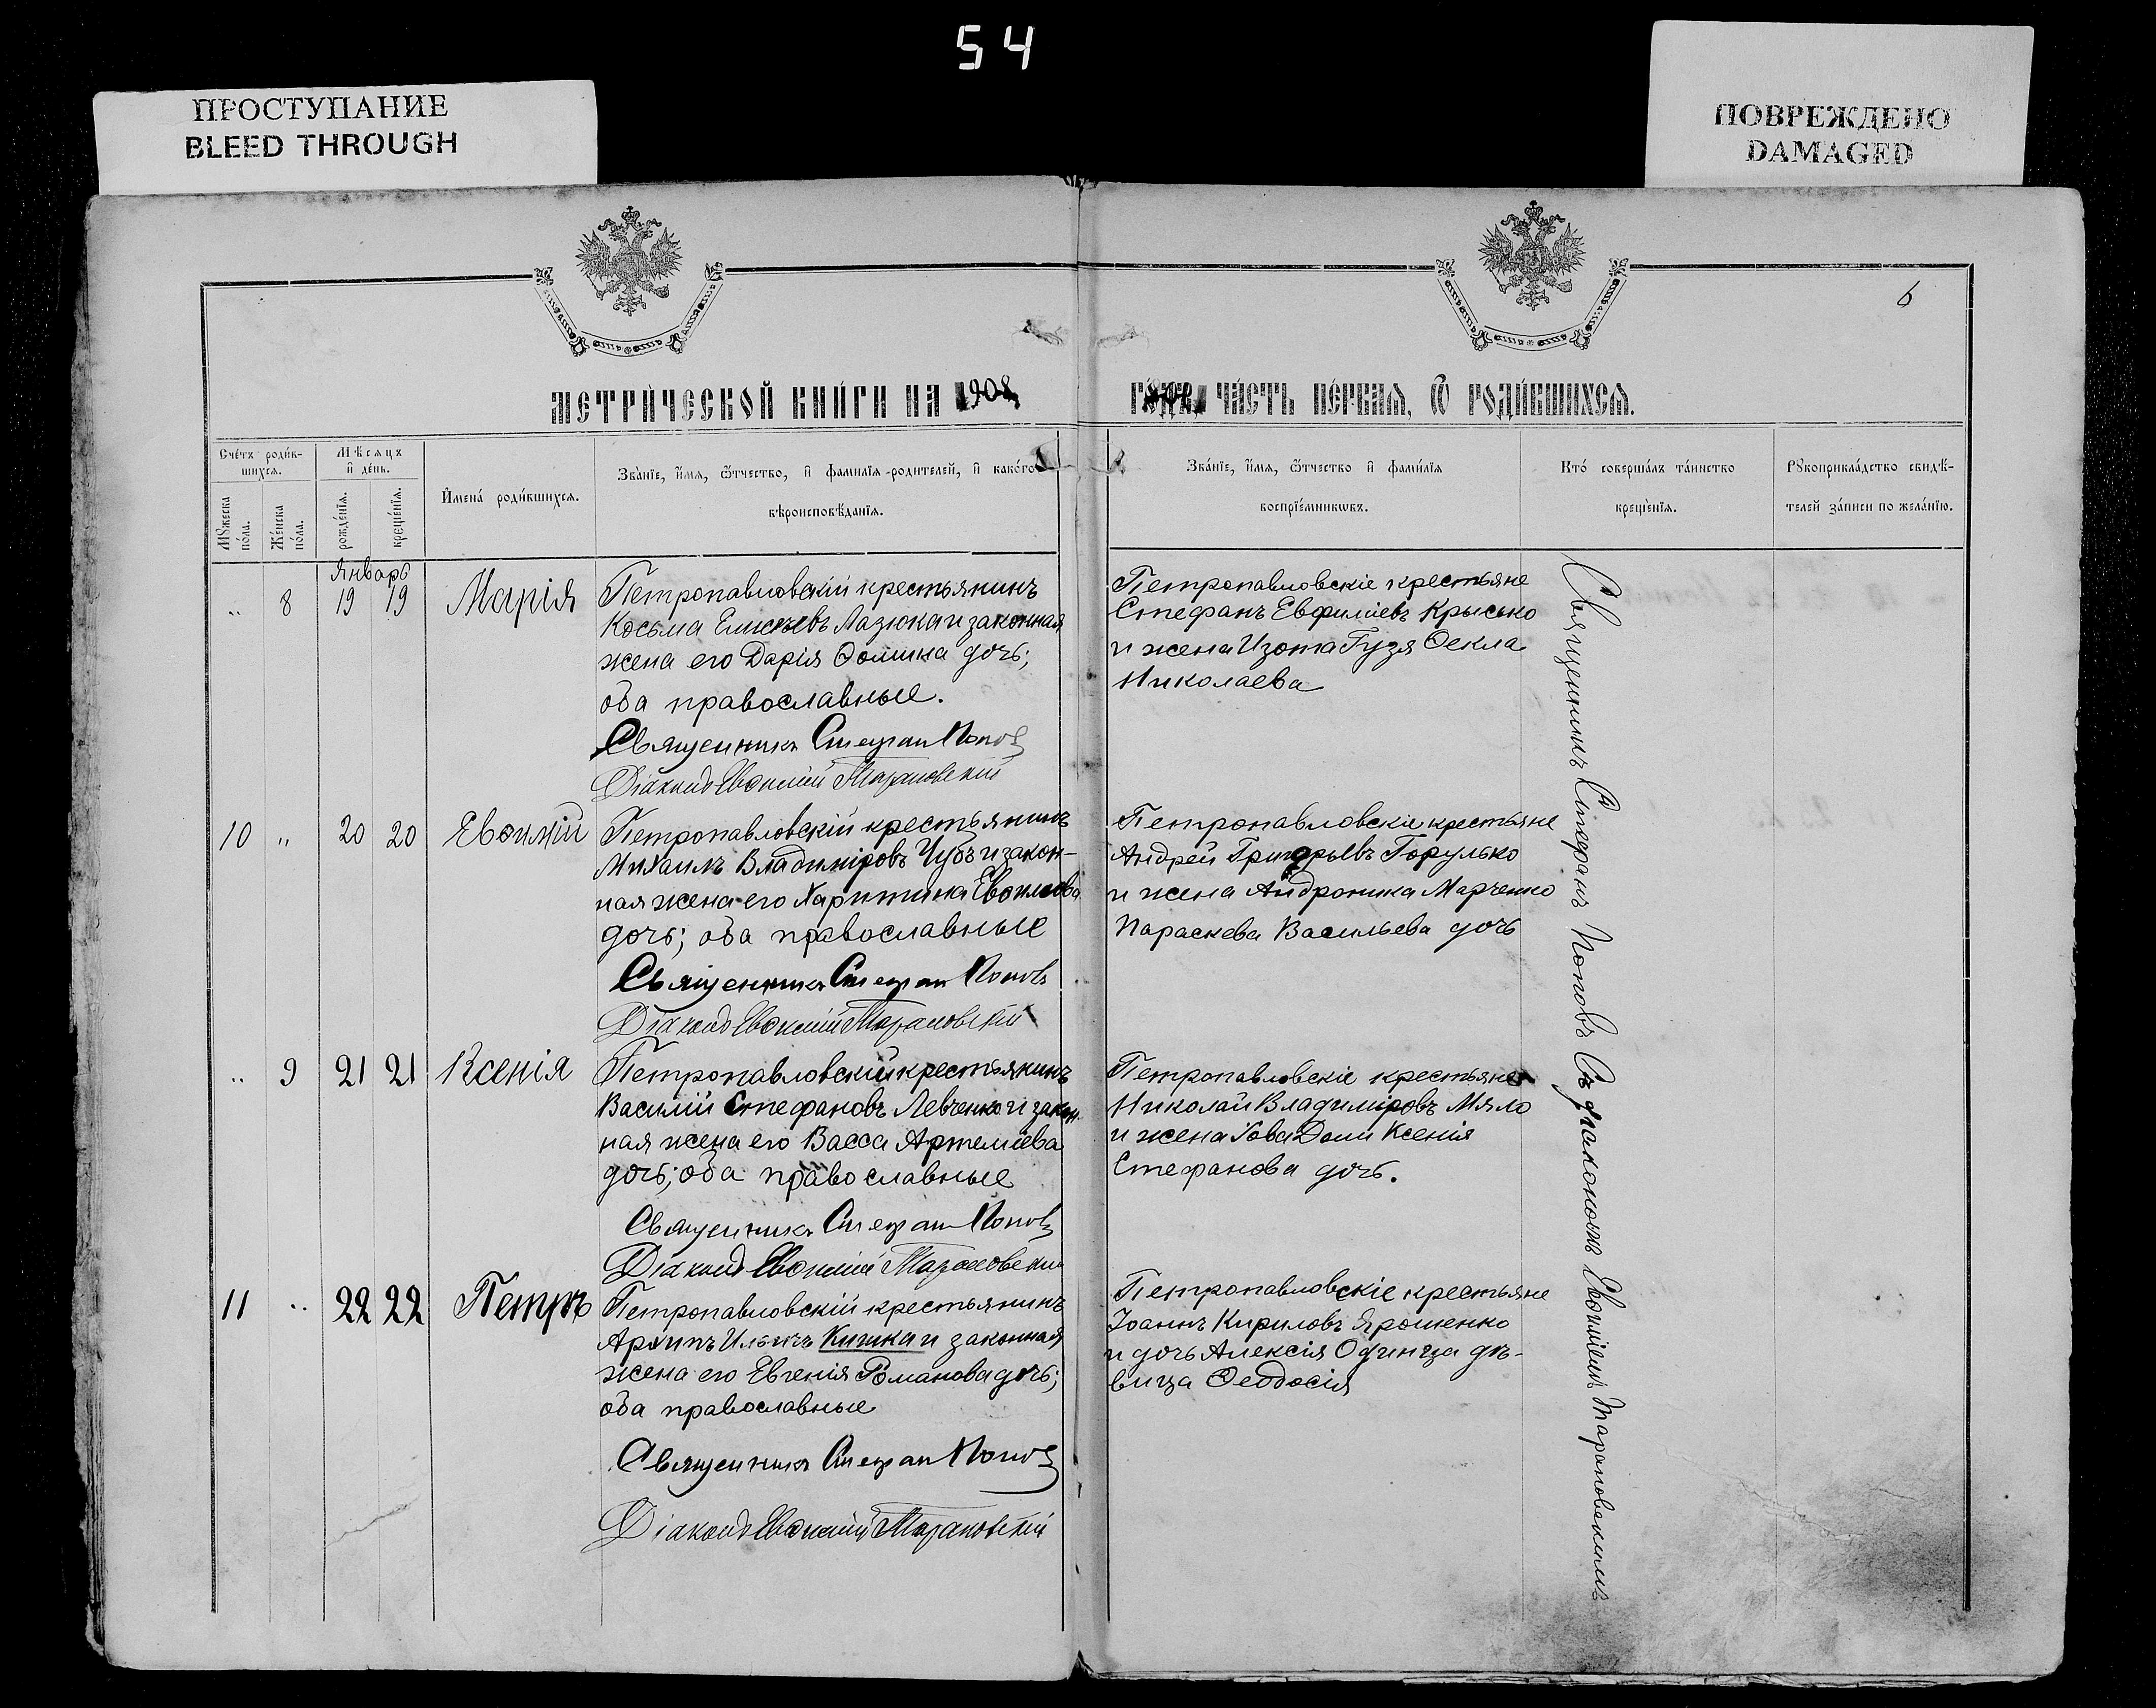 54
ПРОСТУПАНИЕ
BLEED THROUGH
ПОВРЕЖДЕНО
DAMAGED
6
МЕТРИ́ЧЕСКОЙ КНИ́ГИ НА 1908
ЧА́СТЬ ПЕ́РВАѦ, Ѽ РОДИ́ВШИХСѦ.
Сче́тъ роди́в-
шихсѧ.
Мѣсѧцъ
и҆ де́нь.
Мꙋ́жеска
по́ла.
Же́нска
по́ла.
рожде́нїѧ.
креще́нїѧ.
И҆мена́ роди́вшихсѧ.
Зва́нїе, и҆́мѧ, ѻ҆́тчество, и҆ фами́лїѧ родителей, и҆ како́го
вѣроисповѣ́данїѧ.
Зва́нїе, и҆́мѧ, ѻ҆́тчество и҆ фами́лїѧ
воспрїе́мникѡвъ.
Кто́ соверша́лъ та́инство
креще́нїѧ.
Рꙋкоприкла́дство свидѣ́-
телей за́писи по жела́нїю.
Январь
" 8 19 19 Марія
Петропавловскій крестьянинъ
Косьма Елисѣевъ Лазюка и законная
жена его Дарія Ѳомина дочь;
оба православные.
Священникъ Стефан Попов
Діаконъ Евѳимій Тарановский
Петропавловскіе крестьяне
Стефанъ Евфиміевъ Крысько
и жена Изота Гузя Ѳекла
Николаева
10 " 20 20 Евѳимій
Петропавловскій крестьянинъ
Михаилъ Владиміровъ Чубъ и закон-
ная жена его Харитина Евѳимова
дочь; оба православные
Священникъ Стефан Поповъ
Діаконъ Евѳимій Тарановскій
Петропавловскіе крестьяне
Андрей Григорьевъ Горулько
и жена Андроника Марченко
Параскева Васильева дочь
" 9 21 21 Ксенія
Петропавловскій крестьянинъ
Василій Стефановъ Левченко и закон-
ная жена его Васса Артеміева
дочь; оба православные
Священникъ Стефан Поповъ
Діаконъ Евѳимій Тарановский
Петропавловскіе крестьяне
Николай Владиміровъ Мяло
и жена Іова Ксенія
Стефанова дочь.
11 " 22 22 Петръ
Петропавловскій крестьянинъ
Архипъ Ильичъ Кишка и законная
жена его Евгенія Романова дочь;
оба православные
Священникъ Стефан Попов
Діаконъ Евѳимій Тарановскій
Петропавловскіе крестьяне
Іоаннъ Кириловъ Ярошенко
и дочь Алексія Одинца дѣ-
вица Ѳеодосія
Священникъ Стефанъ Поповъ Съ діакономъ Евѳиміемъ Тарановскимъ